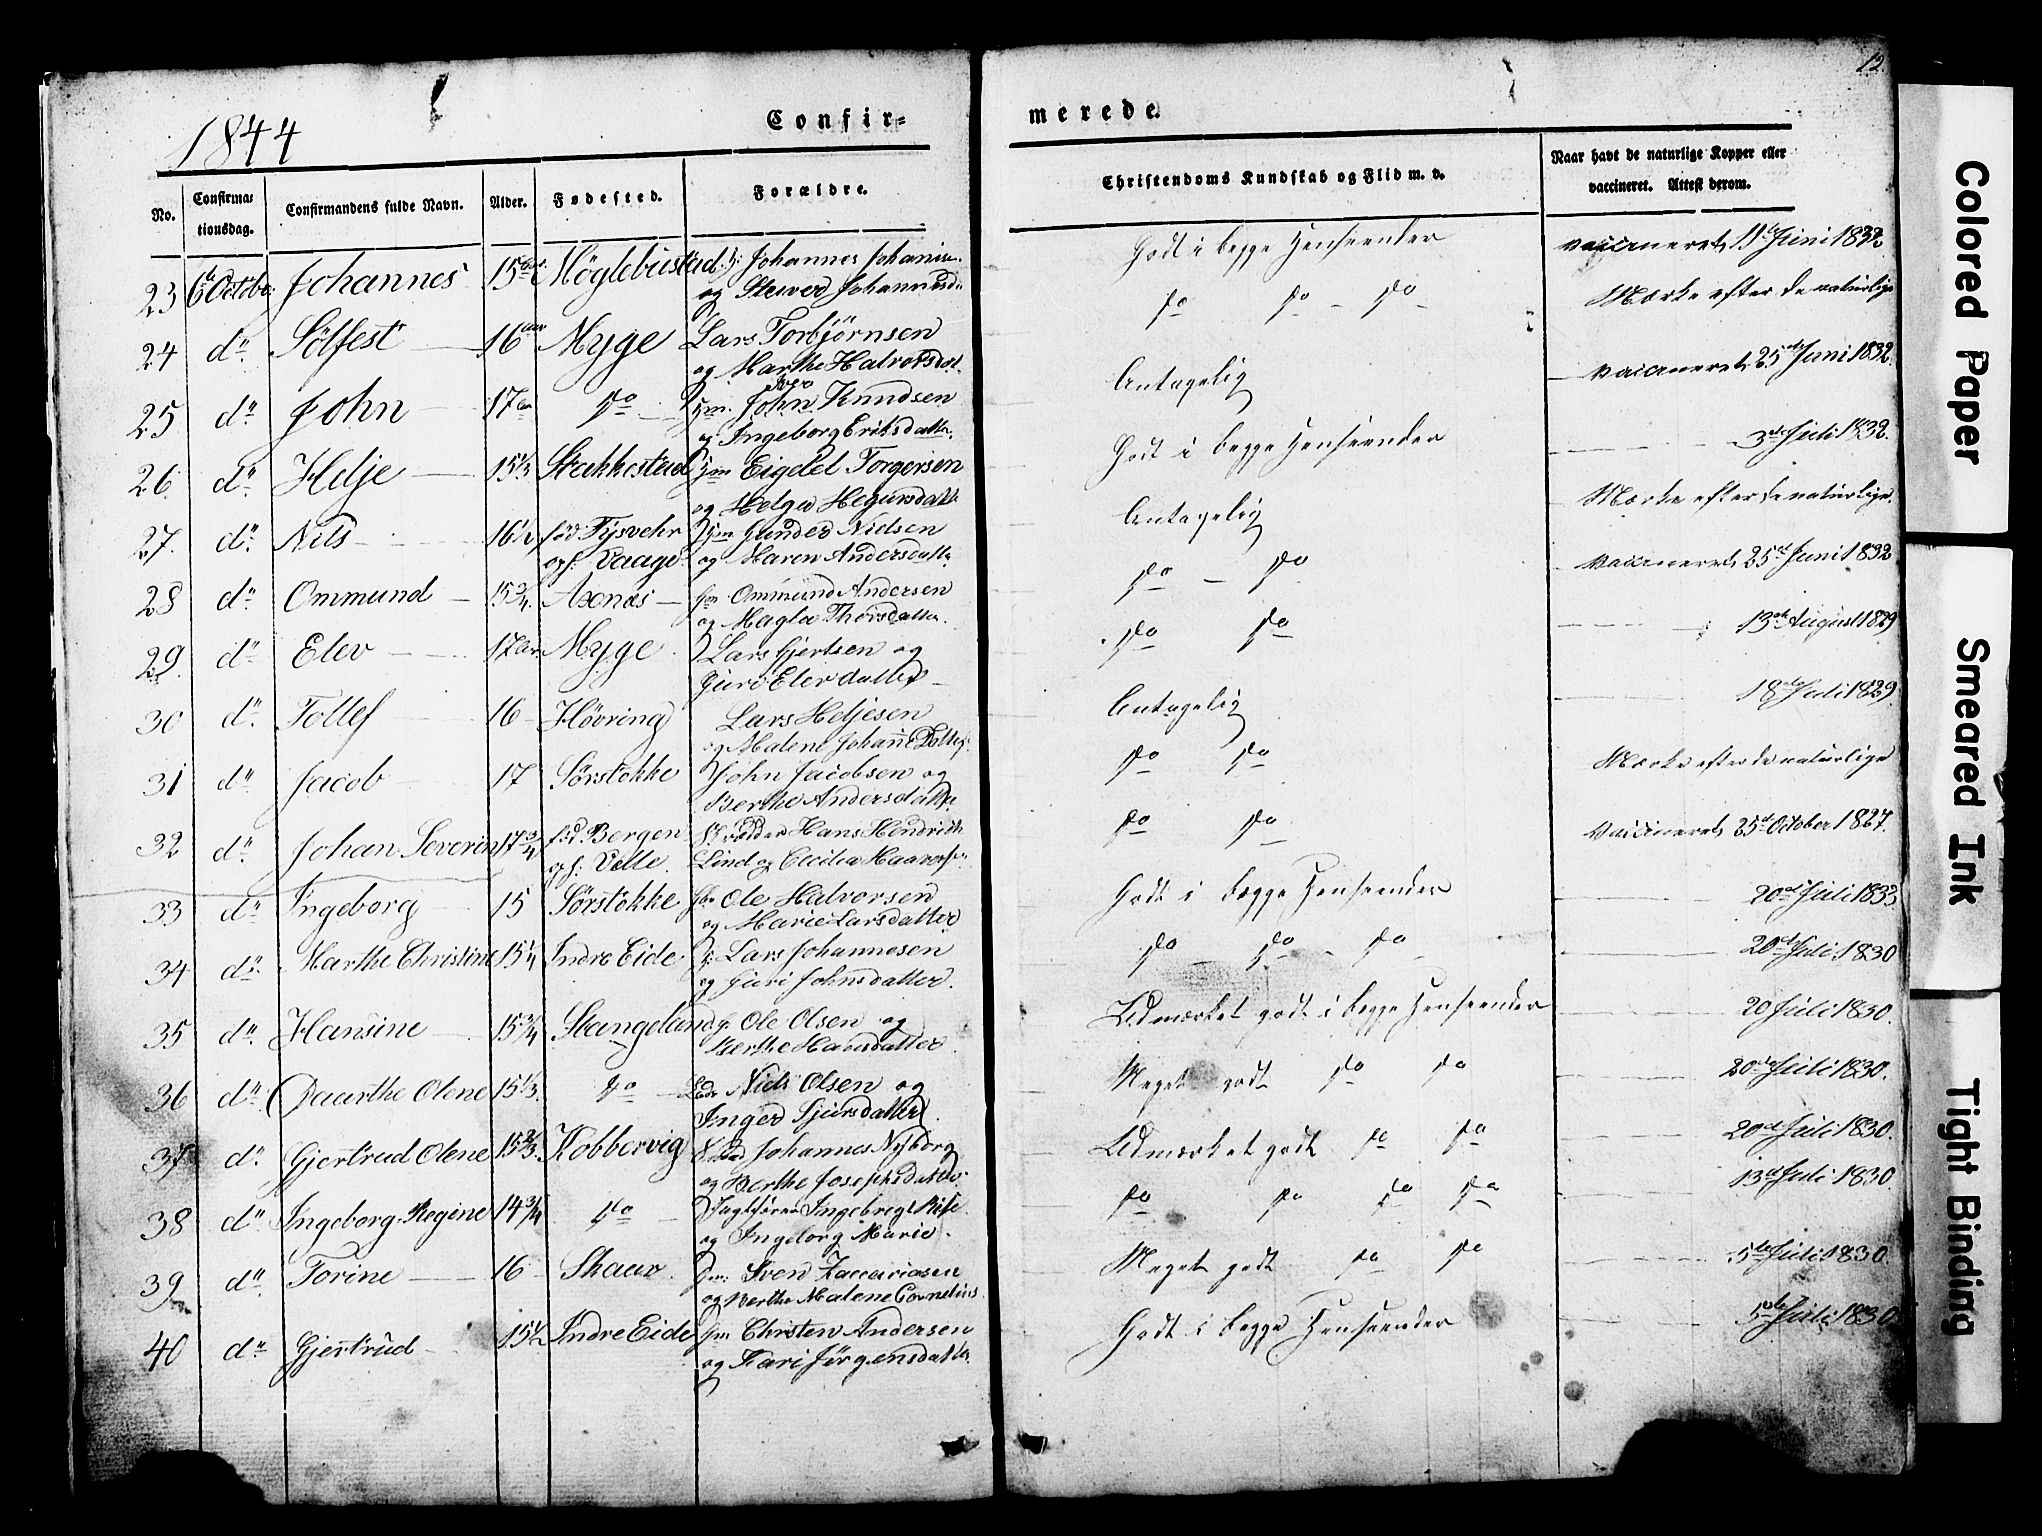 1844
Confir=
No.
Confirma=
tionsdag.
Confirmandens fulde Navn.
Alder.
Fødested.
Forældre.
23 6te Octobr Johannes 15 aar Høglebustad Johannes
og Johannesd
24 do Sölfest 16 aar Myge Lars Torbjörnsen
og Marthe Halvorsdat
25 do John 17 do John Knudsen
og Ingeborg Eriksdatter
26 do Helje 15 1/3 Stakkestad Gm Eigdel Torgersen
og Helga
27. do Nils 16 1/2 föd: Tysvehr Gm Gunder Nielsen
opf: Vaage og Maren Andersdatter
28 do Ommund 15 3/4 Axnæs Gm Ommund Andersen
og Magla Thorsdatter.
29. do Elev 17 Aar Myge Lars Gjertsen og
Guri Elevdatter
30 do Tollef 16 Hövring Lars Heljesen
og Malene
31 do Jacob 17 Sörstokke John Jacobsen og
Berthe Andersdatter
32 do Johan Severin 17 3/4 föd: Bergen Skrædder Hans Hendrich
opf: Lind og Cecilia
33 do Ingeborg 15 Sörstokke Ole Halvorsen
og Marie Larsdatter
34 do Marthe Christine 15 1/4 Indre Eide Lars Johannesen
og Guri Johnsdatter.
35 do Hansine 15 3/4 Stangeland Ole Olsen og
Berthe Hansdatter
36 do Daarthe Olene 15 1/3 do Niels Olsen og
Inger Sjursdatter.
37 do Gjertrud Olene 15 2/3 Kobbervig Johannes Nyborg
og Berthe Josephsdatter
38 do Ingeborg Regine 14 3/4 do Ingebregt
og Ingeborg Marie.
39 do Torine 16 Skaar Gm: Sven Zaccariasen
og Berthe Malene Cornelius
40 do Gjertrud 15 1/2 Indre Eide Gm Christen Andersen
og Kari Jörgensdatter
12.
merede.
Christendoms Kundskab og Flid m. v.
Naar havt de naturlige Kopper eller
vaccineret. Attest derom.
Godt i begge Henseender vaccineret 11te Juni 1832
do do - do Mærke efter de naturlige
Antagelig vaccineret 25de Juni 1832.
Godt i begge Henseender 3de Juli 1832.
Antagelig Mærke efter de naturlige.
do - do vaccineret 25de Juni 1832
do do 13de August 1829
Antagelig 18de Juli 1829.
do do Mærke efter de naturlige
do do vaccineret 25de October 1827.
Godt i begge Henseender 20de Juli 1833
do - do - do 20de Juli 1830
Udmærket godt i begge Henseender 20 Juli 1830.
Meget godt do do 20de Juli 1830.
Udmærket godt do do 20de Juli 1830.
do do do do 13de Juli 1830.
Meget godt do do 5te Juli 1830.
Godt i begge Henseender Juli 1830
Colored Paper
Smeared Ink
Tight Binding